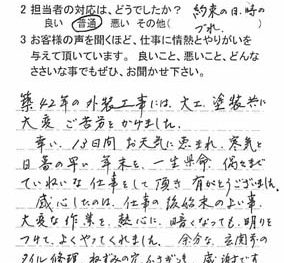 2 担当者の対応は、どうでしたか？
良い 普通 悪い その他( 約束の日、時の
ブレ.
3 お客様の声を聞くほど、仕事に情熱とやりがいを
与えて頂いています。 良いこと、悪いこと、どんな
ささいな事でもぜひ、お聞かせ下さい。
築42年の外装工事には、大工、塗装共に
大変 ご苦労をかけました。
幸い、13日間 お天気に恵まれ、寒気と
日暮の早い 年末を、一生県命
ていねいな仕事をして頂き 有がとうございました。
感心したのは、仕事の後始末のよい事、
大変な作業を、熱心に、暗くなっても、明りを
つけて、よくやってくれました。 余分な、玄関等の
タイル修理 ねずみの穴ふさぎも 感謝です